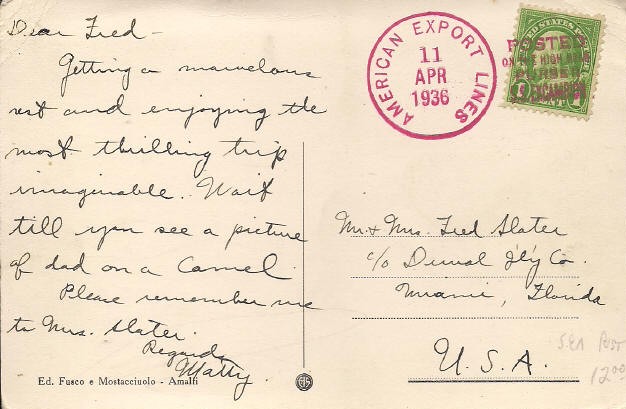 Dear Fred -
Getting a marvelous
rest and enjoying the
most thrilling trip
imaginable. Wait
till you see a picture
of dad on a Camel.
Please remember me
to Mrs. Slater.
Regards
Matty.
Ed. Fusco e Mostacciuolo - Amalfi
AMERICAN EXPORT LINES
11
APR
1936
POSTED
ON THE HIGH SEAS
PURSER
EXCAMBION
Mr. + Mrs. Fred Slater
c/o Duval J'l'y Co.
Miami, Florida
U.S.A.
SEA Post
12.00